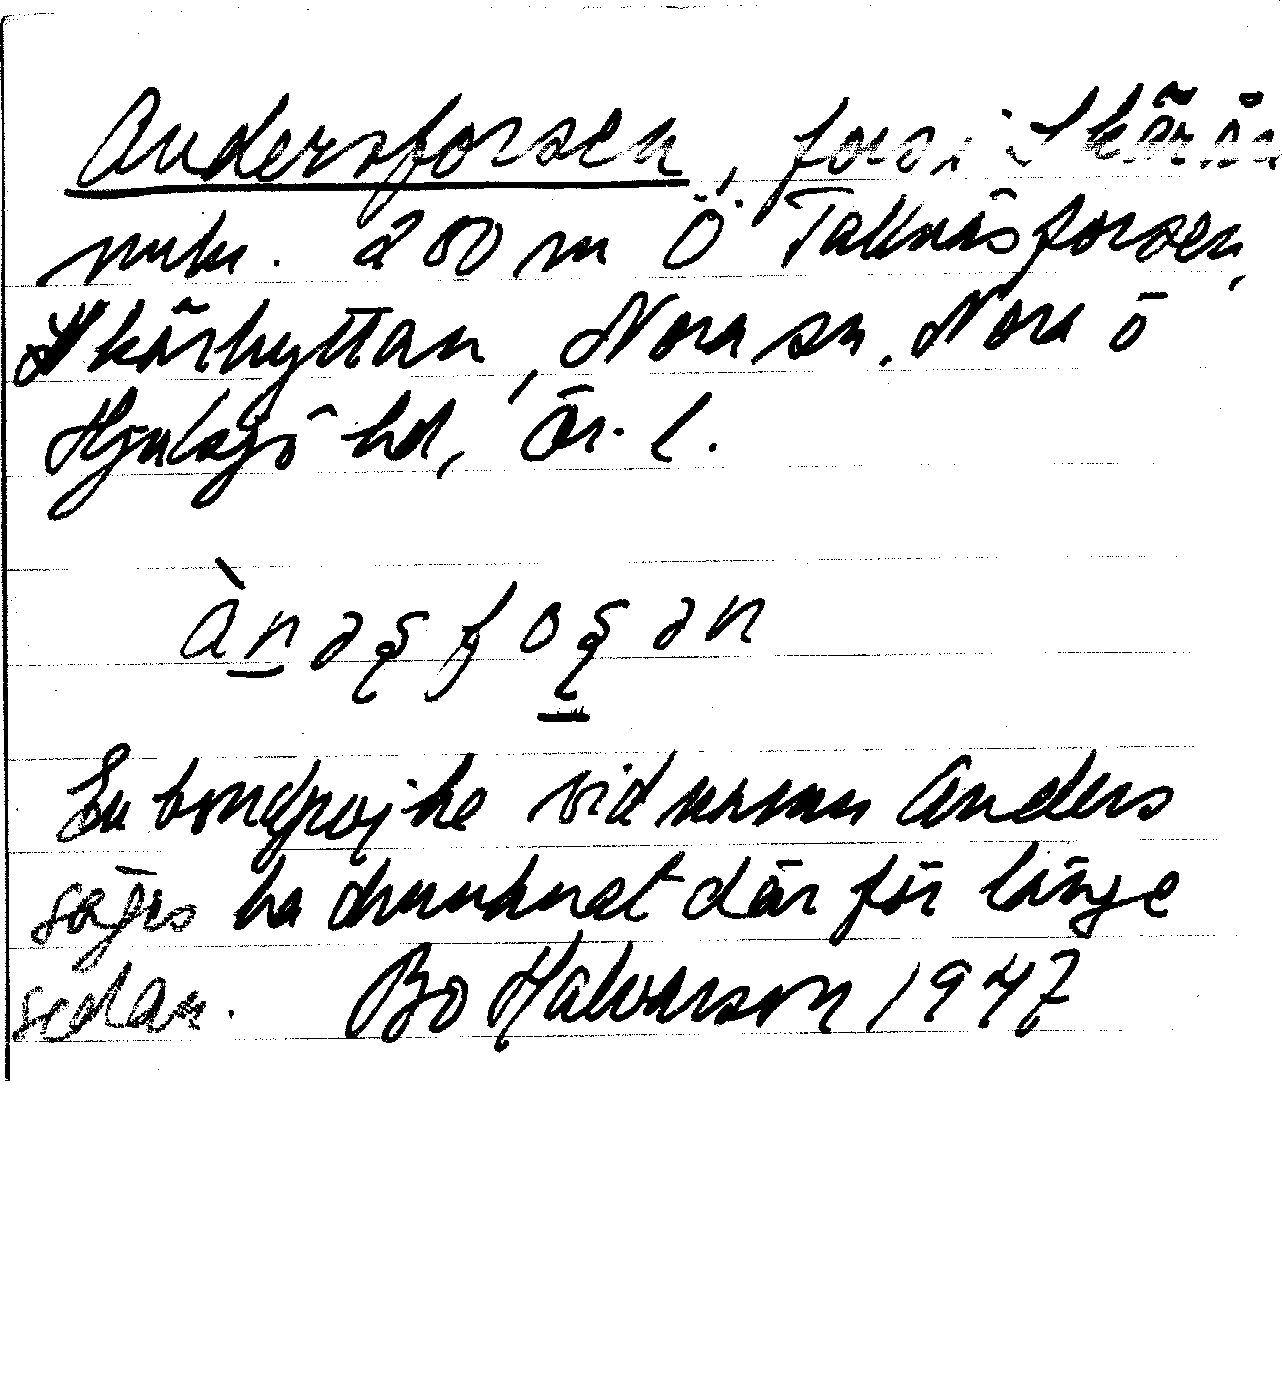 Andersforsen, fors i Skärån
omkr. 250 m Ö Taknäsforsen,
Skärhyttan, Nora sn. Nora o
Hjulsjö hd, Ör. l.
àn̲əʂfoʂ̲ən
En bondpojke vid namn Anders
säges ha drunknat där för länge
sedan. Bo Halvarson 1947